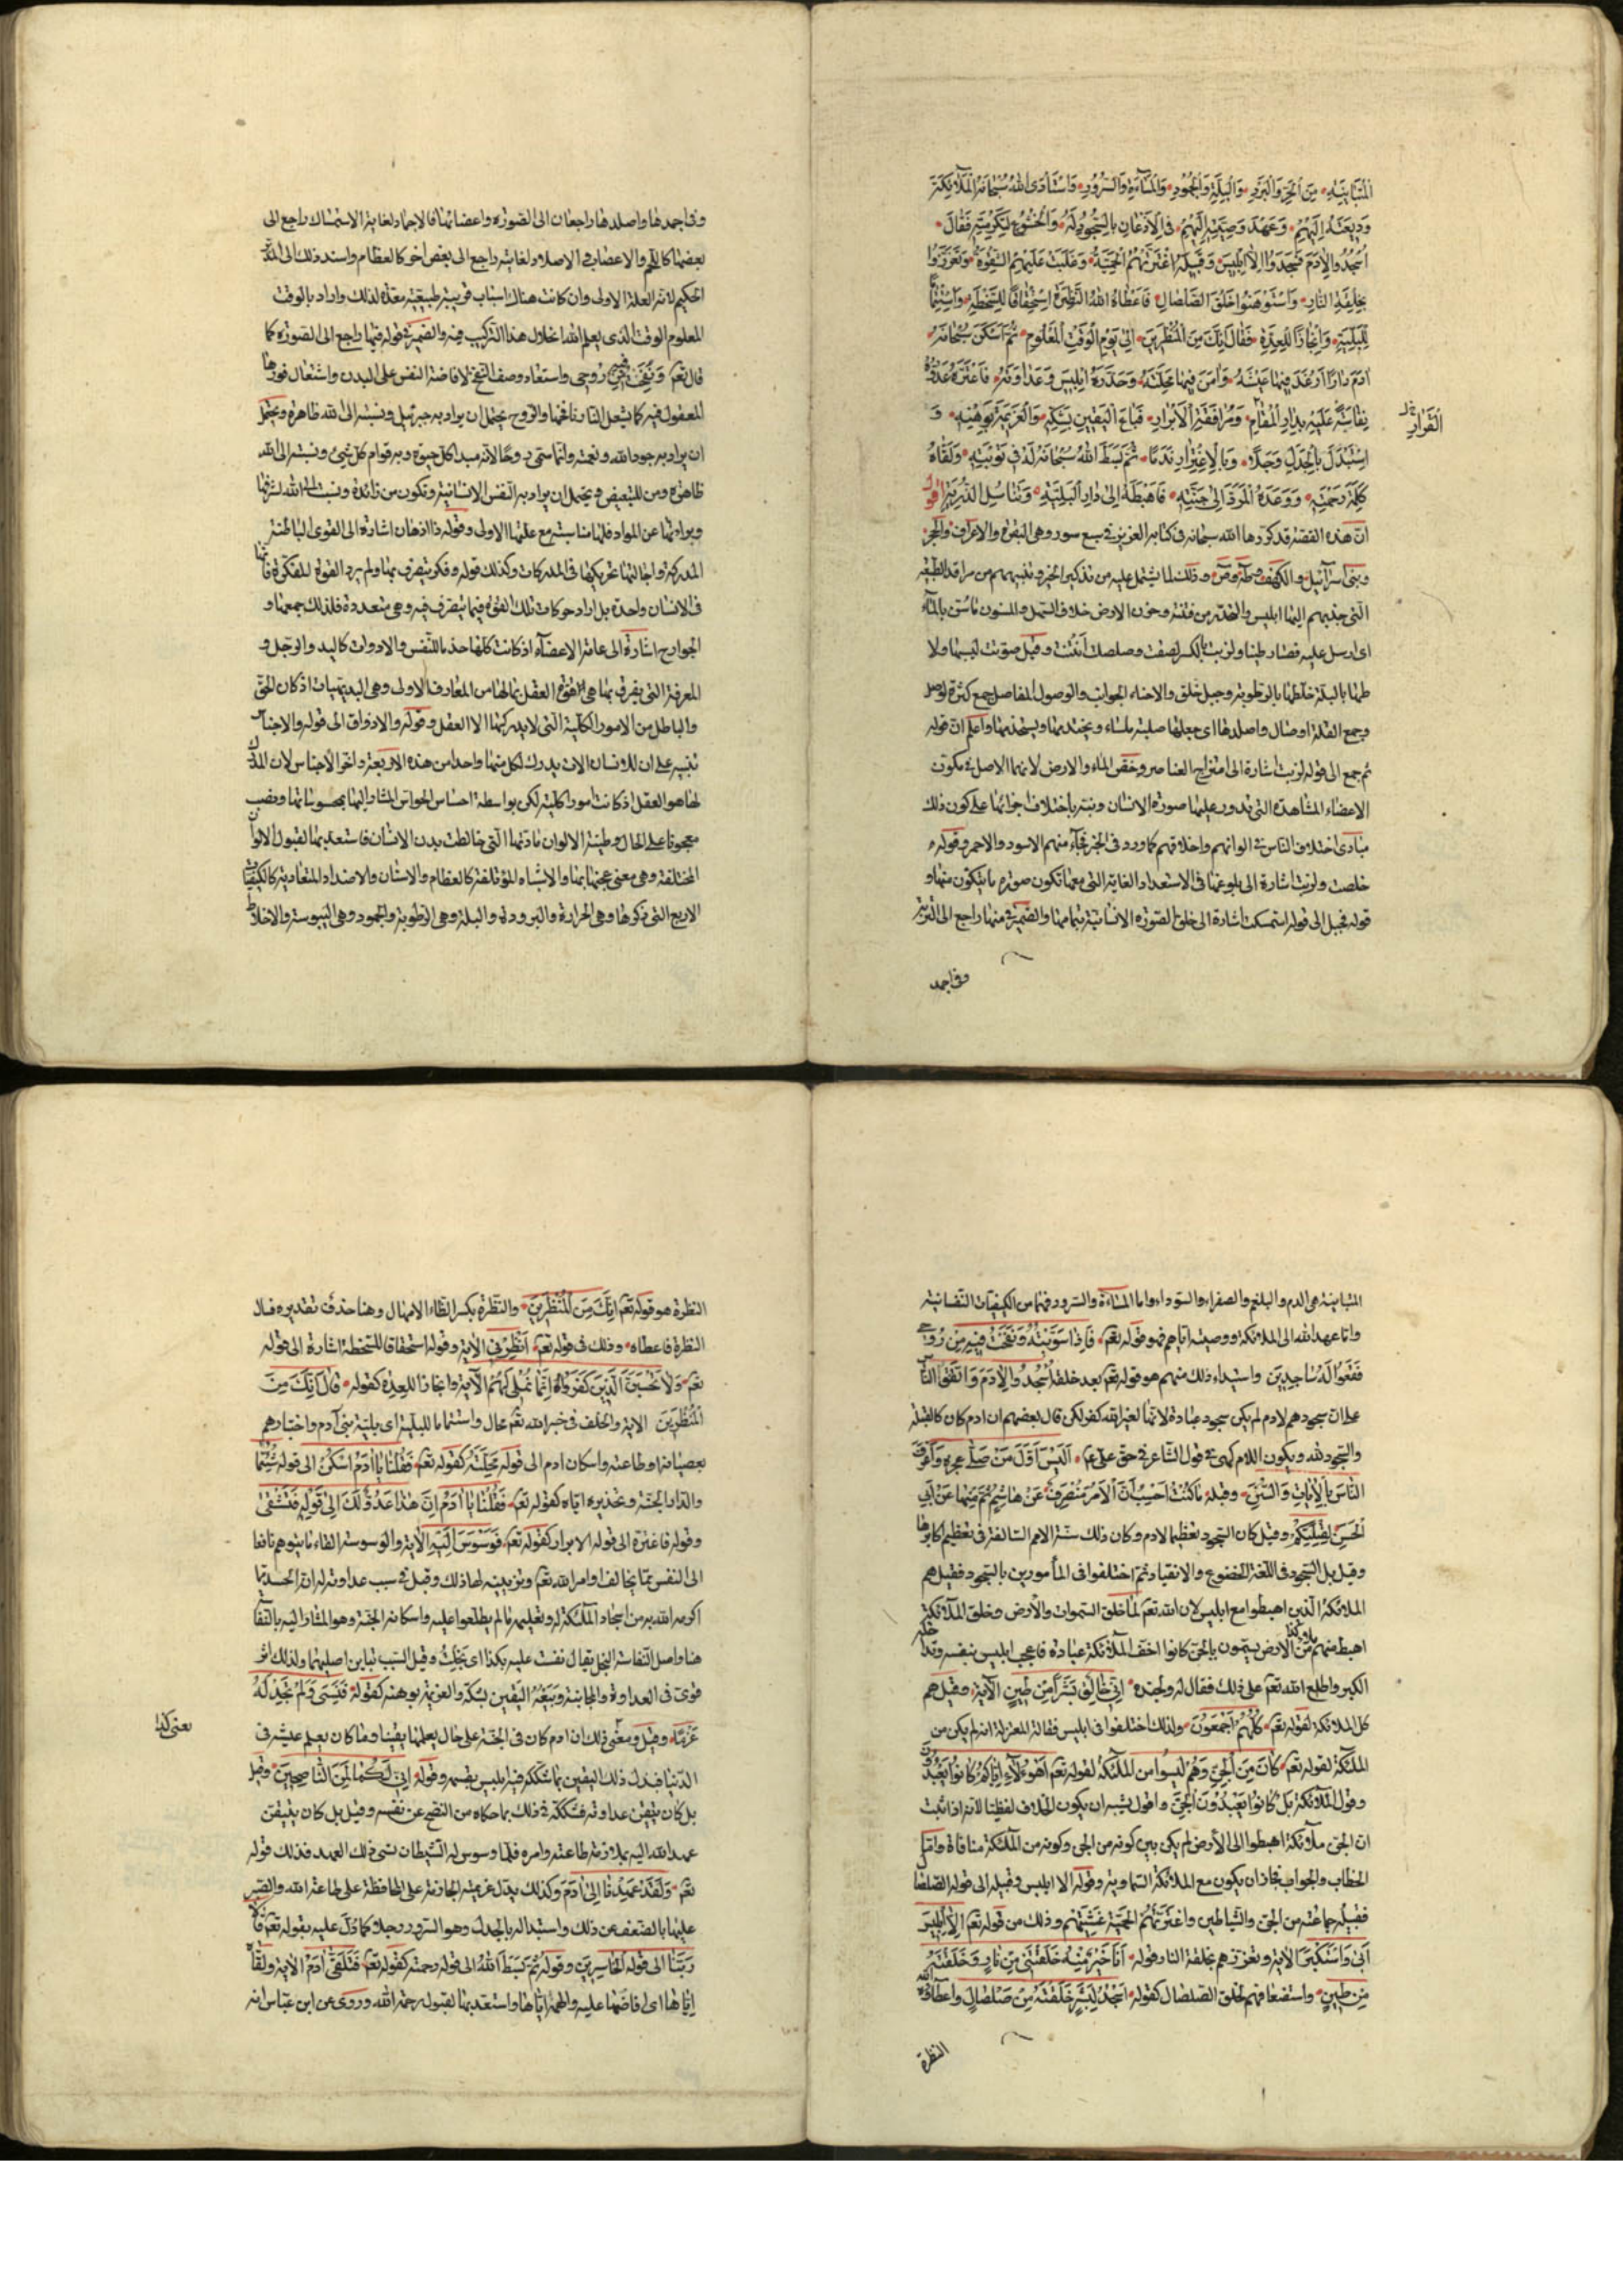 المُتَبَايِنَةِ مِنَ الْحَرِّ وَالْبَرْدِ وَالْبِلَّةِ وَالْجُمُودِ وَالْمَسَاءَةِ وَالسُّرُورِ وَاسْتَأْدَى اللهُ سُبْحَانَهُ الْمَلَائِكَةَ
وَدِيعَتَهُ لَدَيْهِمْ وَعَهْدَ وَصِيَّتِهِ إِلَيْهِمْ فِي الْإِذْعَانِ بِالسُّجُودِ لَهُ وَالْخُشُوعِ لِتَكْرِمَتِهِ فَقَالَ
اسْجُدُوا لِآدَمَ فَسَجَدُوا إِلَّا إِبْلِيسَ وَقَبِيلَهُ اعْتَرَتْهُمُ الْحَمِيَّةُ وَغَلَبَتْ عَلَيْهِمُ الشِّقْوَةُ وَتَعَزَّزُوا
بِخِلْقَةِ النَّارِ وَاسْتَوْهَنُوا خَلْقَ الصَّلْصَالِ فَأَعْطَاهُ اللهُ النَّظِرَةَ اسْتِحْقَاقًا لِلسَّخْطَةِ وَاسْتِتْمَامًا
لِلْبَلِيَّةِ وَإِنْجَازًا لِلْعِدَةِ فَقَالَ إِنَّكَ مِنَ الْمُنْظَرِينَ إِلَى يَوْمِ الْوَقْتِ الْمَعْلُومِ ثُمَّ أَسْكَنَ سُبْحَانَهُ
آدَمَ دَارًا أَرْغَدَ فِيهَا عِيشَتَهُ وَآمَنَ فِيهَا مَحَلَّتَهُ وَحَذَّرَهُ إِبْلِيسَ وَعَدَاوَتَهُ فَاغْتَرَّهُ عَدُوُّهُ
نَفَاسَةً عَلَيْهِ بِدَارِ الْمُقَامِ وَمُرَافَقَةِ الْأَبْرَارِ فَبَاعَ الْيَقِينَ بِشَكِّهِ وَالْعَزِيمَةَ بِوَهْنِهِ وَ
القرار
اسْتَبْدَلَ بِالْجَذَلِ وَجَلًا وَبِالِاغْتِرَارِ نَدَمًا ثُمَّ بَسَطَ اللهُ سُبْحَانَهُ لَهُ فِي تَوْبَتِهِ وَلَقَّاهُ
كَلِمَةَ رَحْمَتِهِ وَوَعَدَهُ الْمَرَدَّ إِلَى جَنَّتِهِ فَأَهْبَطَهُ إِلَى دَارِ الْبَلِيَّةِ وَتَنَاسُلِ الذُّرِّيَّةِ أقول
انّ هذه القصة قد كررها الله سبحانه في كتابه العزيز في سبع سور وهي البقرة والاعراف والحجر
وبني اسرآئيل والكهف وطه وص وذلك لما يشتمل عليه من تذكير الخلق وتنبيههم من مراقد الطبيعة
التي جذبهم اليها ابليس والتحذير من فتنته وحزن الارض خلاف السهل والمسنون
طينا ولزبت بالكسر لصقت وصلصلت انتنت وقيل صوتت
بالبلة خلطها بالرطوبة وجبل خلق والاحناء الجوانب والوصول المفاصل جمع كثرة لوصل
وجمع القلة اوصال واصلدها اى جعلها صلبة ملساء واعلم ان قوله
ثم جمع الى قوله لزبت اشارة الى امتزاج العناصر وخصّ الماء والارض لانهما الاصل في تكون
الاعضاء المشاهدة التي تدور عليها صورة الانسان
مبادى اختلاف الناس في الوانهم واخلاقهم كما ورد في الخبر فجآء منهم الاسود والاحمر وقوله
خلصت ولزبت اشارة الى بلوغها في الاستعداد الغاية التي معها تكون صورة ما يتكون منها و
قوله فجبل الى قوله استمسكت اشارة الى خلق الصورة الانسانية بتمامها والضمير في منها راجع الى التربة
وفي اجمد
وفي اجمدها واصلدها راجعان الى الصورة واعضائها فالاجماد لغاية الاستمساك راجع الى
بعضها كاللحم والاعصاب والاصلاد لغايته راجع الى بعض آخر كالعظام واسند ذلك الى المدبّر
الحكيم لانه العلة الاولى وان كانت هناك اسباب قريبة طبيعية معدّة لذلك واراد بالوقت
المعلوم الوقت الذى يعلم الله انحلال هذا التركيب فيه والضمير في قوله فيها راجع الى الصورة كما
قال تعم ونفخت فيه من روحي واستعار وصف النفخ لافاضة النفس على البدن واشتعال نورها
المعقول فيه كما تشعل النار نافخها والروح يحتمل ان يراد به جبرئيل ونسبته الى الله ظاهرة ويحتمل
ان يراد به جود الله ونعمته وانما سمّى روحًا لانه مبدأ كل حيوة وبه قوام كل شئ ونسبته الى الله
ظاهرة ومن للتبعيض ويحتمل ان يراد به النفس الانسانية وتكون من زائدة ونسبتها الى الله لشرفها
وبراءتها عن المواد فلها مناسبة مع علتها الاولى وقوله ذا اذهان اشارة الى القوى الباطنة
المدركة واجالتها تحريكها في المدركات وكذلك قوله وفكر يتصرف بها ولم يرد القوة المفكرة فانها
في الانسان واحدة بل اراد حركات تلك القوة فيما يتصرف فيه وهى متعددة فلذلك جمعها و
الجوارح اشارة الى عامة الاعضاء اذ كانت كلها خدما للنفس والادوات كاليد والرجل و
المعرفة التي يفرق بها هى قوة العقل بما لها من المعارف الاولى وهى البديهيات اذ كان الحق
والباطل من الامور الكلية التي لا يدركها الا العقل وقوله والاذواق الى قوله والاجناس
تنبيه على ان للانسان الات يدرك لكل منها واحدا من هذه الاربعة واخّر الاجناس لان المدرك
لها هو العقل اذ كانت امورا كلية لكن بواسطة احساس الحواس المشار اليها بمحسوساتها ونصب
معجونا على الحال وطينة الالوان مادتها التي خالطت بدن الانسان فاستعد بها لقبول الالوان
المختلفة وهى معنى عجنها بها والاشباه المؤتلفة كالعظام والاسنان والاضداد المتعادية كالكيفيات
الاربع التي ذكرها وهى الحرارة والبرودة والبلة وهى الرطوبة والجمود وهى اليبوسة والاخلاط
المتباينة هى الدم والبلغم والصفراء والسوداء واما المساءة والسرور فهما من الكيفيات النفسانية
واما عهد الله الى الملائكة ووصيته اياهم فهو قوله تعم فَإِذَا سَوَّيْتُهُ وَنَفَخْتُ فِيهِ مِنْ رُوحِي
فَقَعُوا لَهُ سَاجِدِينَ واستيداء ذلك منهم هو قوله تعم بعد خلقه اُسْجُدُوا لِآدَمَ واتفق الناس
على ان سجودهم لادم لم يكن سجود عبادة لانها لغير الله كفر لكن قال بعضهم ان ادم كان كالقبلة
والسجود لله ويكون اللام كهى في قول الشاعر في حق على عم اَلَيْسَ أَوَّلَ مَنْ صَلَّى وَأَعْرَفَ
النَّاسِ بِالْآيَاتِ وَالسُّنَنِ وقبله مَا كُنْتُ أَحْسِبُ أَنَّ الْأَمْرَ مُنْصَرِفٌ عَنْ هَاشِمٍ ثُمَّ مِنْهَا عَنْ أَبِي
الْحَسَنِ وقيل كان السجود تعظيما لادم وكان ذلك سنة الامم السالفة في تعظيم اكابرها
وقيل بل السجود في اللغة الخضوع والانقياد ثم اختلفوا في المأمورين بالسجود فقيل هم
الملائكة الذين اهبطوا مع ابليس لان الله تعم لما خلق السموات والارض وخلق الملائكة
اهبط منهم ملأ الى الارض يسمون بالجن كانوا اخف الملائكة عبادة فاعجب ابليس بنفسه وتداخله
الكبر واطلع الله تعم على ذلك فقال له ولجنده اِنِّي خَالِقٌ بَشَرًا مِنْ طِينٍ الآية وقيل هم
كل الملائكة لقوله تعم كُلُّهُمْ أَجْمَعُونَ ولذلك اختلفوا في ابليس فقالت المعتزلة انه لم يكن من
الملئكة لقوله تعم كَانَ مِنَ الْجِنِّ وهم ليسوا من الملئكة لقوله تعم أَهَؤُلَاءِ إِيَّاكُمْ كَانُوا يَعْبُدُونَ
وقول الملائكة بَلْ كَانُوا يَعْبُدُونَ الْجِنَّ واقول يشبه ان يكون الخلاف لفظيا لانه اذا ثبت
ان الجن ملائكة اهبطوا الى الأرض لم يكن بين كونه من الجن وكونه من الملئكة منافاة واما
الخطاب والجواب فجاز ان يكون مع الملائكة السماوية وقوله الا ابليس وقبيله الى قوله الصلصال
فقبيله جماعته من الجن والشياطين واعْتَرَتْهُمُ الْحَمِيَّةُ غشيتهم وذلك من قوله تعم إِلَّا إِبْلِيسَ
أَبَى وَاسْتَكْبَرَ الآية وتعززهم بخلقة النار قوله أَنَا خَيْرٌ مِنْهُ خَلَقْتَنِي مِنْ نَارٍ وَخَلَقْتَهُ
مِنْ طِينٍ واستضعافهم لخلق الصلصال كقوله أَسْجُدُ لِبَشَرٍ خَلَقْتَهُ مِنْ صَلْصَالٍ واعطاؤه
النظرة
النظرة هو قوله تعم إِنَّكَ مِنَ الْمُنْظَرِينَ والنظرة بكسر الظاء الامهال وهنا حذف تقديره فسأل
النظرة فاعطاه وذلك في قوله تعم أَنْظِرْنِي الآية وقوله استحقاقا للسخطة اشارة الى قوله
تعم وَلَا يَحْسَبَنَّ الَّذِينَ كَفَرُوا أَنَّمَا نُمْلِي لَهُمْ الآية وانجازا للعدة كقوله قَالَ إِنَّكَ مِنَ
الْمُنْظَرِينَ الاية والخلف في خبر الله تعم محال واستتماما للبلية اى بلية بنى آدم واختبارهم
بعصيانه او طاعته واسكان ادم الى قوله محلته كقوله تعم فَقُلْنَا يَا آدَمُ اسْكُنْ الى قوله شِئْتُمَا
والدار الجنة وتحذيره اياه كقوله تعم فَقُلْنَا يَا آدَمُ إِنَّ هَذَا عَدُوٌّ لَكَ الى قوله فَتَشْقَى
وقوله فاغتره الى قوله الابرار كقوله تعم فَوَسْوَسَ إِلَيْهِ الآية والوسوسة القاء ما يتوهم نافعا
الى النفس مما يخالف اوامر الله تعم وتزيينه لها ذلك وقيل في سبب عداوته له ان الحسد بما
اكرمه الله به من اسجاد الملئكة له وتعليمه ما لم يطلعوا عليه واسكانه الجنة وهو المشار اليه بالنفاسة
هنا واصل النفاسة البخل يقال نفست عليه بكذا اى بخلت وقيل السبب تباين اصليهما ولذلك اثر
قوى في العداوة والمجانبة وبيعه اليقين بشكه والعزيمة بوهنه كقوله فَنَسِيَ وَلَمْ نَجِدْ لَهُ
عَزْمًا وقيل ومعنى ذلك ان ادم كان في الجنة على حال يعلمها يقينا وما كان يعلم عيشه في
يعنى كذا
الدنيا فبدل ذلك اليقين بما شككه فيه ابليس بقسمه وقوله إِنِّي لَكُمَا لَمِنَ النَّاصِحِينَ وقيل
بل كان يتيقن عداوته فشككه في ذلك بما حكاه من النصح عن نفسه وقيل بل كان يتيقن
عهد الله اليه بملازمة طاعته وامره فلما وسوس له الشيطان نسى ذلك العهد فذلك قوله
تعم وَلَقَدْ عَهِدْنَا إِلَى آدَمَ وكذلك بدّل عزيمته الجازمة على المحافظة على طاعة الله والصبر
عليها بالضعف عن ذلك واستبداله بالجذل وهو السرور وجلا كما دلّ عليه بقوله تعم قَالَا
رَبَّنَا الى قوله الْخَاسِرِينَ وقوله ثُمَّ بَسَطَ اللهُ الى قوله رحمته كقوله تعم فَتَلَقَّى آدَمُ الآية ولقّاه
اياها اى افاضها عليه والهمه اياها واستعد بها لقبول رحمة الله وروى عن ابن عباس انه